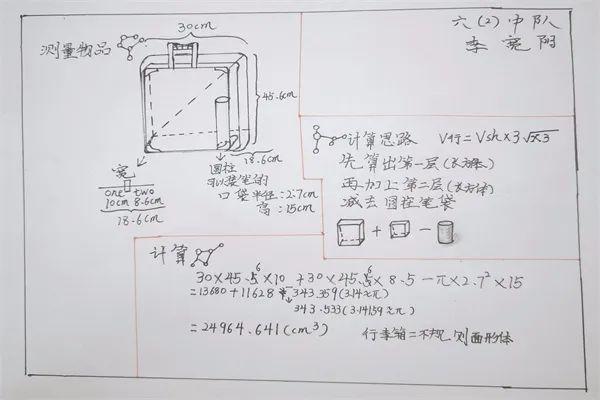 六(2)中队
测量物品
30cm
45.6cm
18.6cm
宽
one two
10cm 8.6cm
18.6cm
圆柱
似装笔的
口袋半径:2.7cm
高:15cm
计算思路
先算出第一层(长方体)
再加上第二层(长方体)
减去圆柱笔袋
+ −
计算
30×45.6×10+30×45.6×8.5−π×2.7²×15
=13680+11628−343.359(3.14≈π)
343.533(3.14159≈π)
=24964.641(cm³)
行李箱=不规则面形体